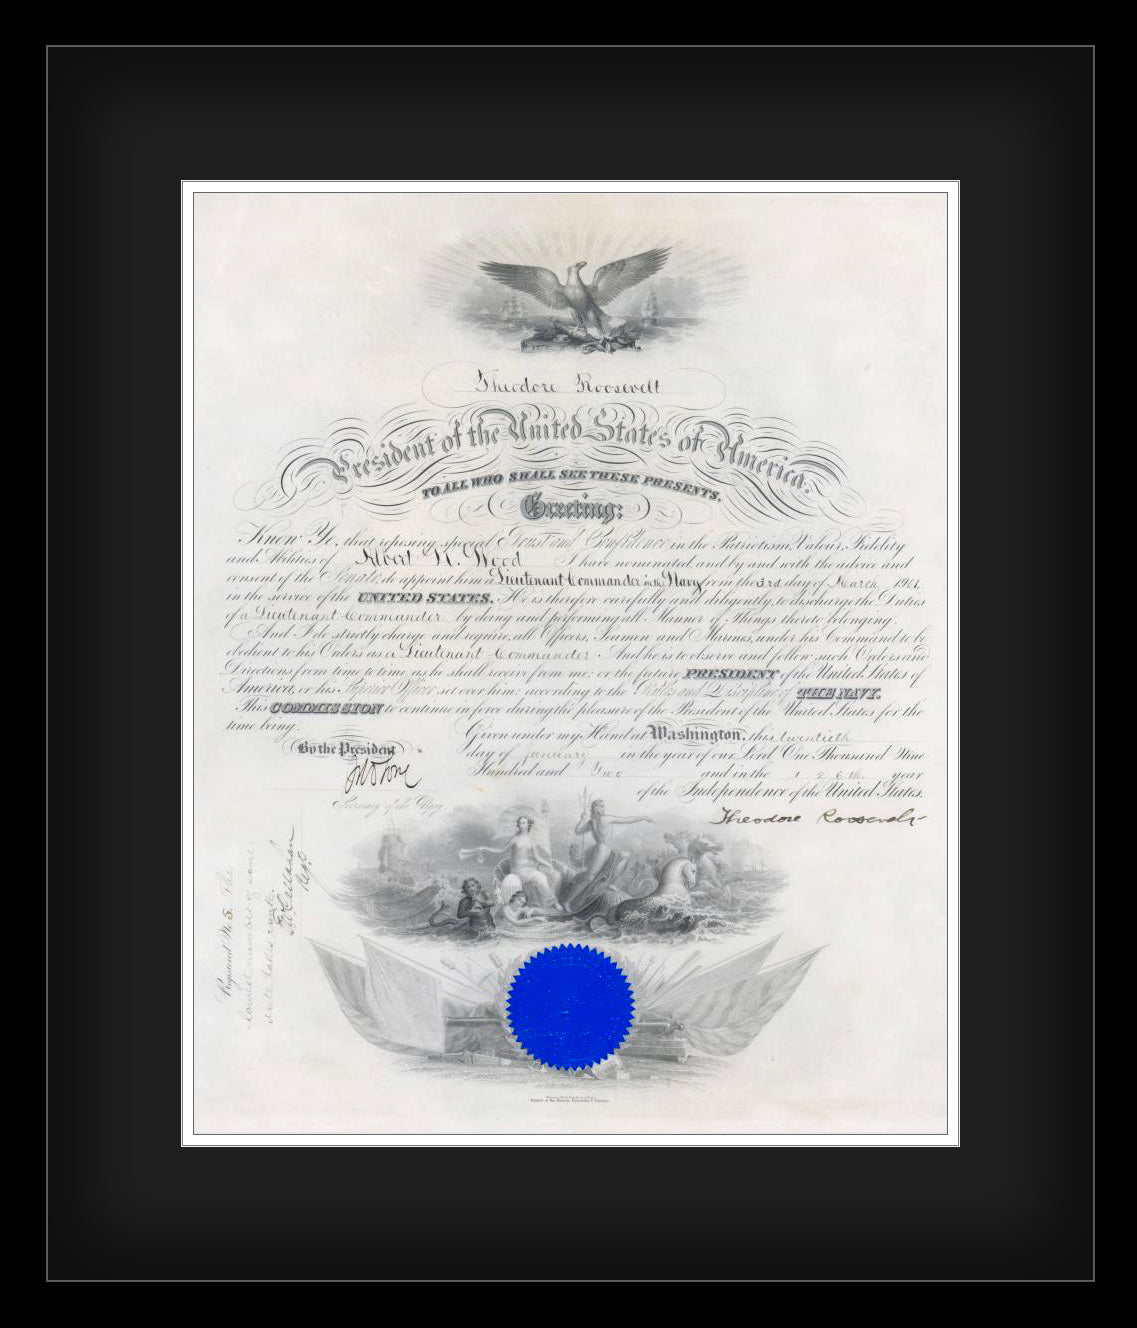 Theodore Roosevelt
President of the United States of America.
TO ALL WHO SHALL SEE THESE PRESENTS,
Greeting:
Know Ye, that reposing special Trust and Confidence in the Patriotism, Valour, Fidelity
and Abilities of Albert N. Wood I have nominated, and by and with the advice and
consent of the Senate, do appoint him a Lieutenant Commander in the Navy from the 3rd day of March 1901
in the service of the UNITED STATES. He is therefore carefully and diligently to discharge the Duties
of a Lieutenant Commander by doing and performing all Manner of Things thereto belonging.
And I do strictly charge and require, all Officers, Seamen and Marines, under his Command to be
obedient to his Orders as a Lieutenant Commander And he is to observe and follow such Orders and
Directions from time to time, as he shall receive from me, or the future PRESIDENT of the United States of
America, or his Superior Officer set over him, according to the Rules and Discipline of THE NAVY.
This COMMISSION to continue in force during the pleasure of the President of the United States, for the
time being.
Given under my Hand at Washington, this twentieth
day of January in the year of our Lord One Thousand Nine
Hundred and Two and in the 126th year
of the Independence of the United States.
By the President
Secretary of the Navy
Theodore Roosevelt
Registered No. 5. The